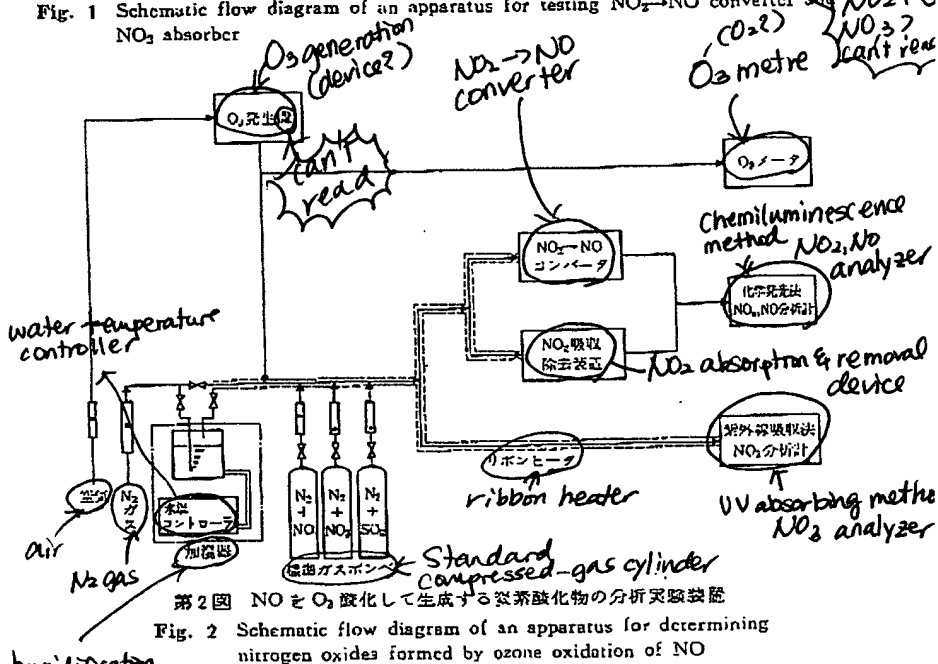 Fig. 1 Schematic flow diagram of an apparatus for testing NO₂→NO converter
NO₃ absorber
O₃ generation
(device?)
NO₂→NO
converter
(O₂?)
O₃ metre
NO₃?
can't
O₃発生
can't
read
O₃メータ
NO₂→NO
コンバータ
chemiluminescence
method NO₂, NO
analyzer
化学発光法
NO₂,NO分析計
water temperature
controller
NO₂吸収
除去装置
NO₂ absorption & removal
device
紫外線吸収法
NO₂分析計
リボンヒータ
ribbon heater
UV absorbing
NO₃ analyzer
空気
air
N₂ガス
N₂ gas
水温
コントローラ
加湿器
N₂+NO
N₂+NO₂
N₂+SO₂
標準ガスボンベ
Standard
compressed-gas cylinder
第2図 NOをO₃酸化して生成する窒素酸化物の分析実験装置
Fig. 2 Schematic flow diagram of an apparatus for determining
nitrogen oxides formed by ozone oxidation of NO